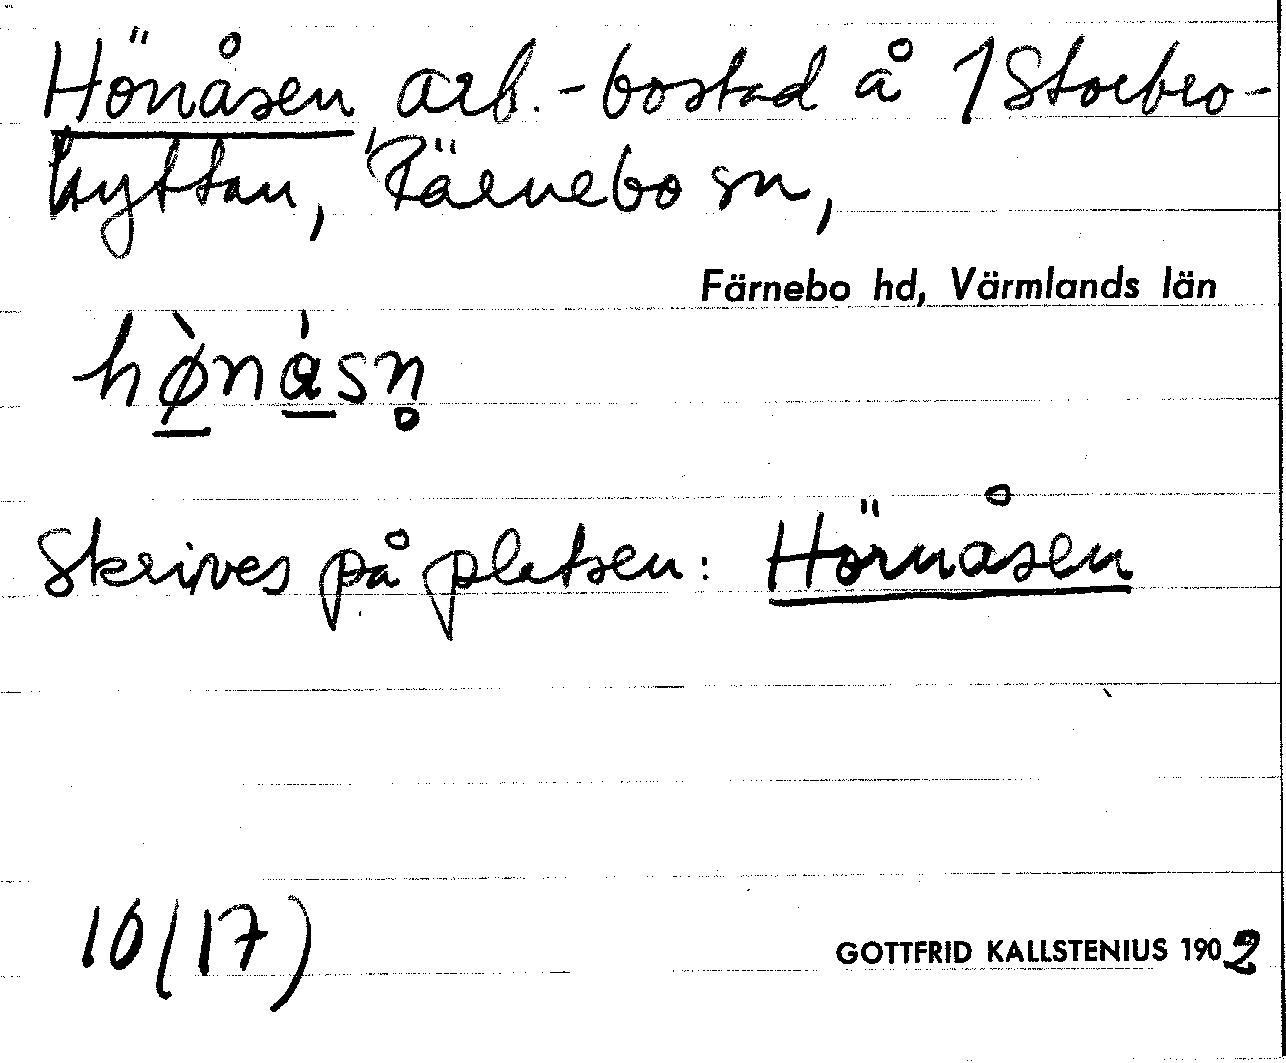 Hönåsen arb.-bostad å 1 Storbro-
hyttan, Färnebo sn,
Färnebo hd, Värmlands län
hø̠̀ná̠sn̥
Skrives på platsen: Hörnåsen
10(17)
GOTTFRID KALLSTENIUS 1902